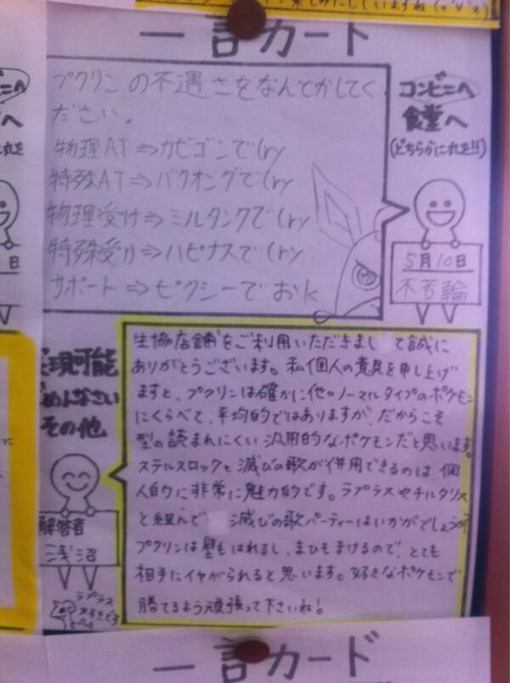 一言カード
プクリンの不遇さをなんてかしてく
ださい。
物理AT⇒カビゴンでしry
特殊AT⇒バクオングでしry
物理受け⇒ミルタンクでしry
特殊受け⇒ハピナスでしry
サポート⇒ピクシーでおk
コンビニへ
食堂へ
(どちらかに丸を!!)
5月10日
不苦輪
生協店舗をご利用いただきまして誠に
ありがとうございます。私個人の意見を申し上げ
ますと、プクリンは確かに他のノーマルタイプのポケモン
にくらべて、平均的ではありますが、だからこそ
型の読まれにくい汎用的なポケモンだと思います。
ステルスロックと滅びの歌が併用できるのは個
人的に非常に魅力的です。ラプラスやチルタリス
と組んで 滅びの歌パーティーはいかがでしょうか?
プクリンは壁もはれるし、まひもまけるので、とても
相手にイヤがられると思います。好きなポケモンで
勝てるよう頑張って下さいね!
実現可能
ごめんなさい
その他
解答者
浅沼
ラプラス
好きです
一言カード